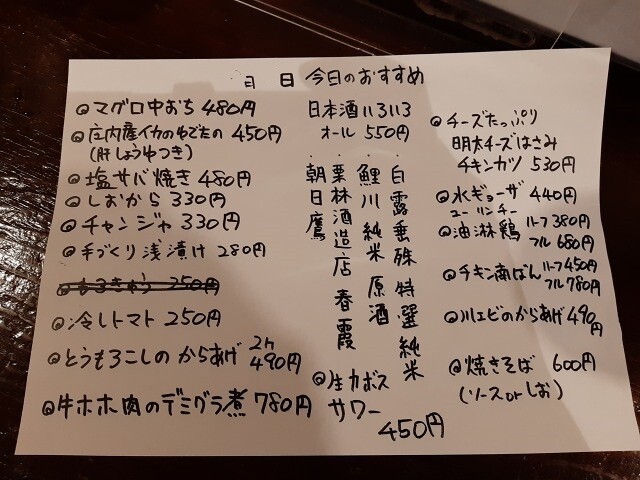 月 日 今日のおすすめ
◎マグロ中おち 480円
◎庄内産イカのゆでたの 450円
(肝しょうゆつき)
◎塩サバ焼き 480円
◎しおから 330円
◎チャンジャ 330円
◎手づくり浅漬け 280円
◎もろきゅう 250円
◎冷しトマト 250円
◎とうもろこしのからあげ 2ケ 490円
◎牛ホホ肉のデミグラ煮 780円
日本酒いろいろ
オール 550円
・白露垂珠 特選純米
・鯉川 純米 原酒
・栗林酒造店 春霞
・朝日鷹
◎生カボス
サワー
450円
◎チーズたっぷり
明太チーズはさみ
チキンカツ 530円
◎水ギョーザ 440円
ユーリンチー
◎油淋鶏 ハーフ 380円
フル 680円
◎チキン南ばん ハーフ 450円
フル 780円
◎川エビのからあげ 490円
◎焼きそば 600円
(ソース or しお)